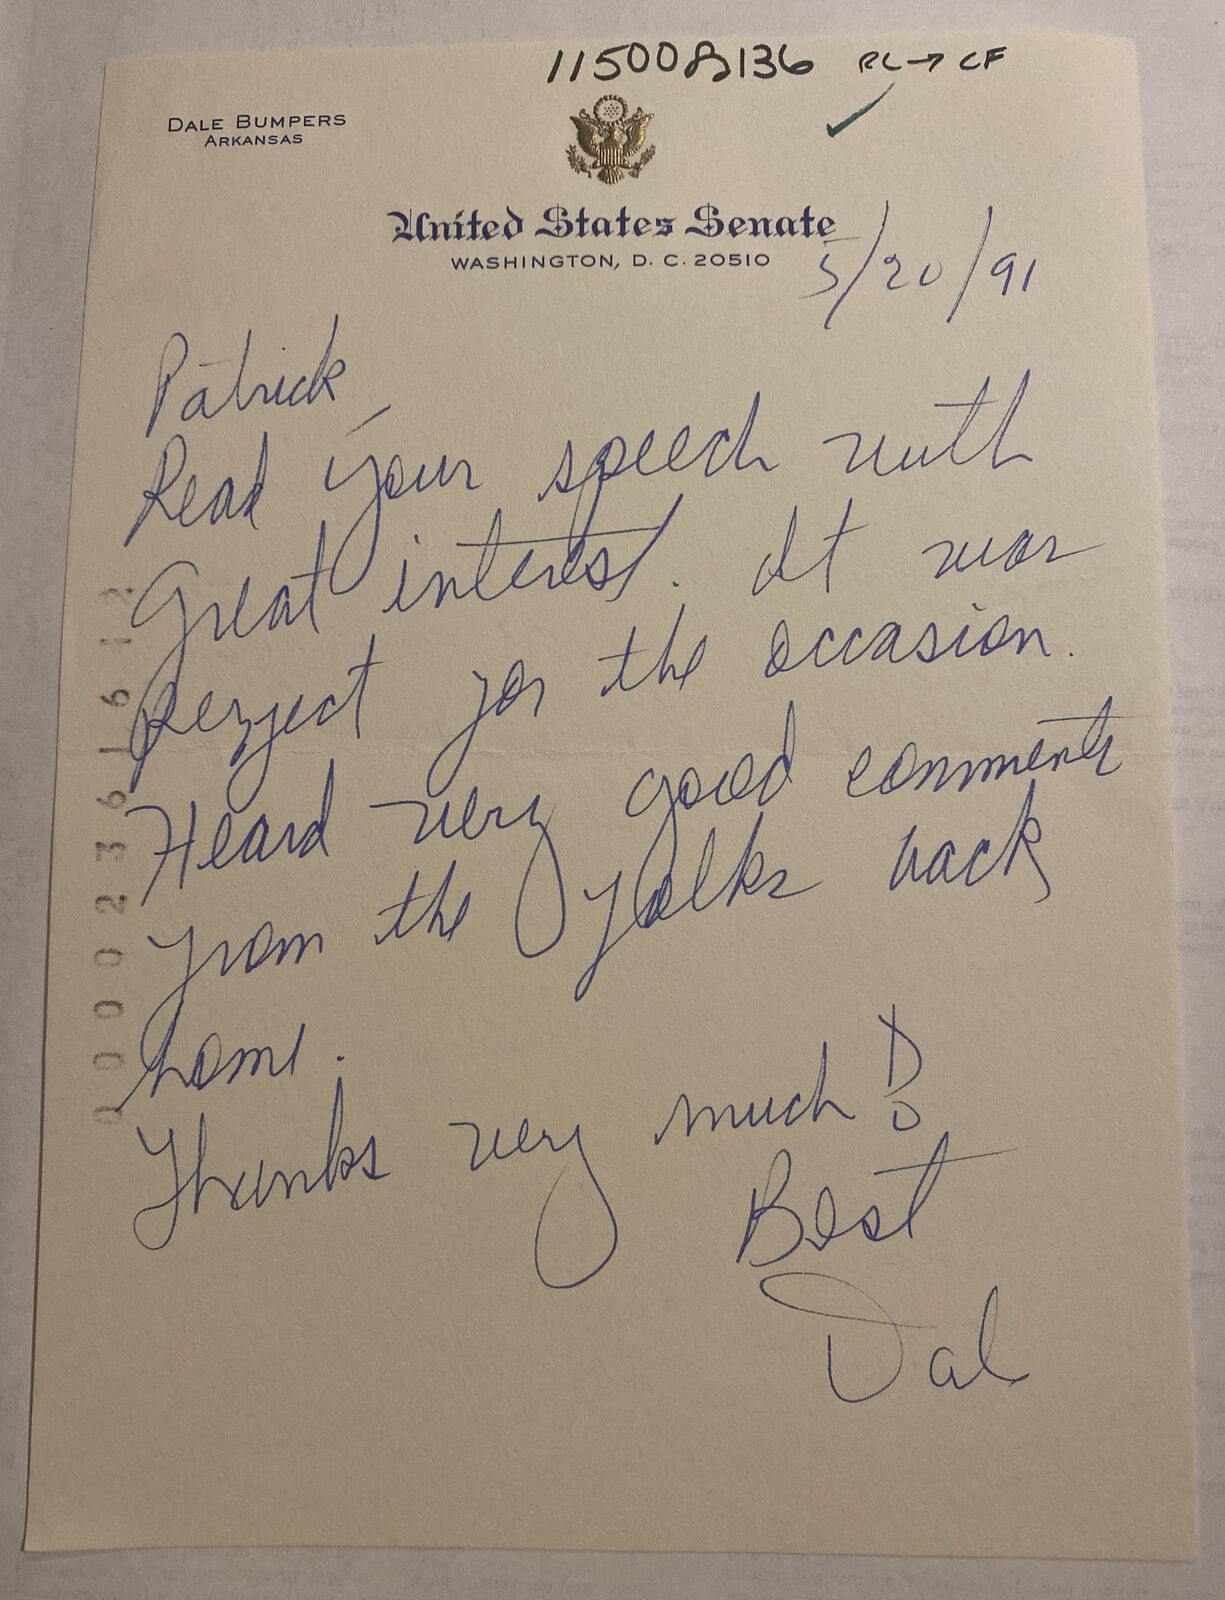 11500B136 RL→CF
DALE BUMPERS
ARKANSAS
United States Senate
WASHINGTON, D. C. 20510
5/20/91
Patrick,
Read your speech with
Great interest. It was
perfect for the occasion.
Heard very good comments
from the folks back
home.
Thanks very much!
Best
Dale
000236161